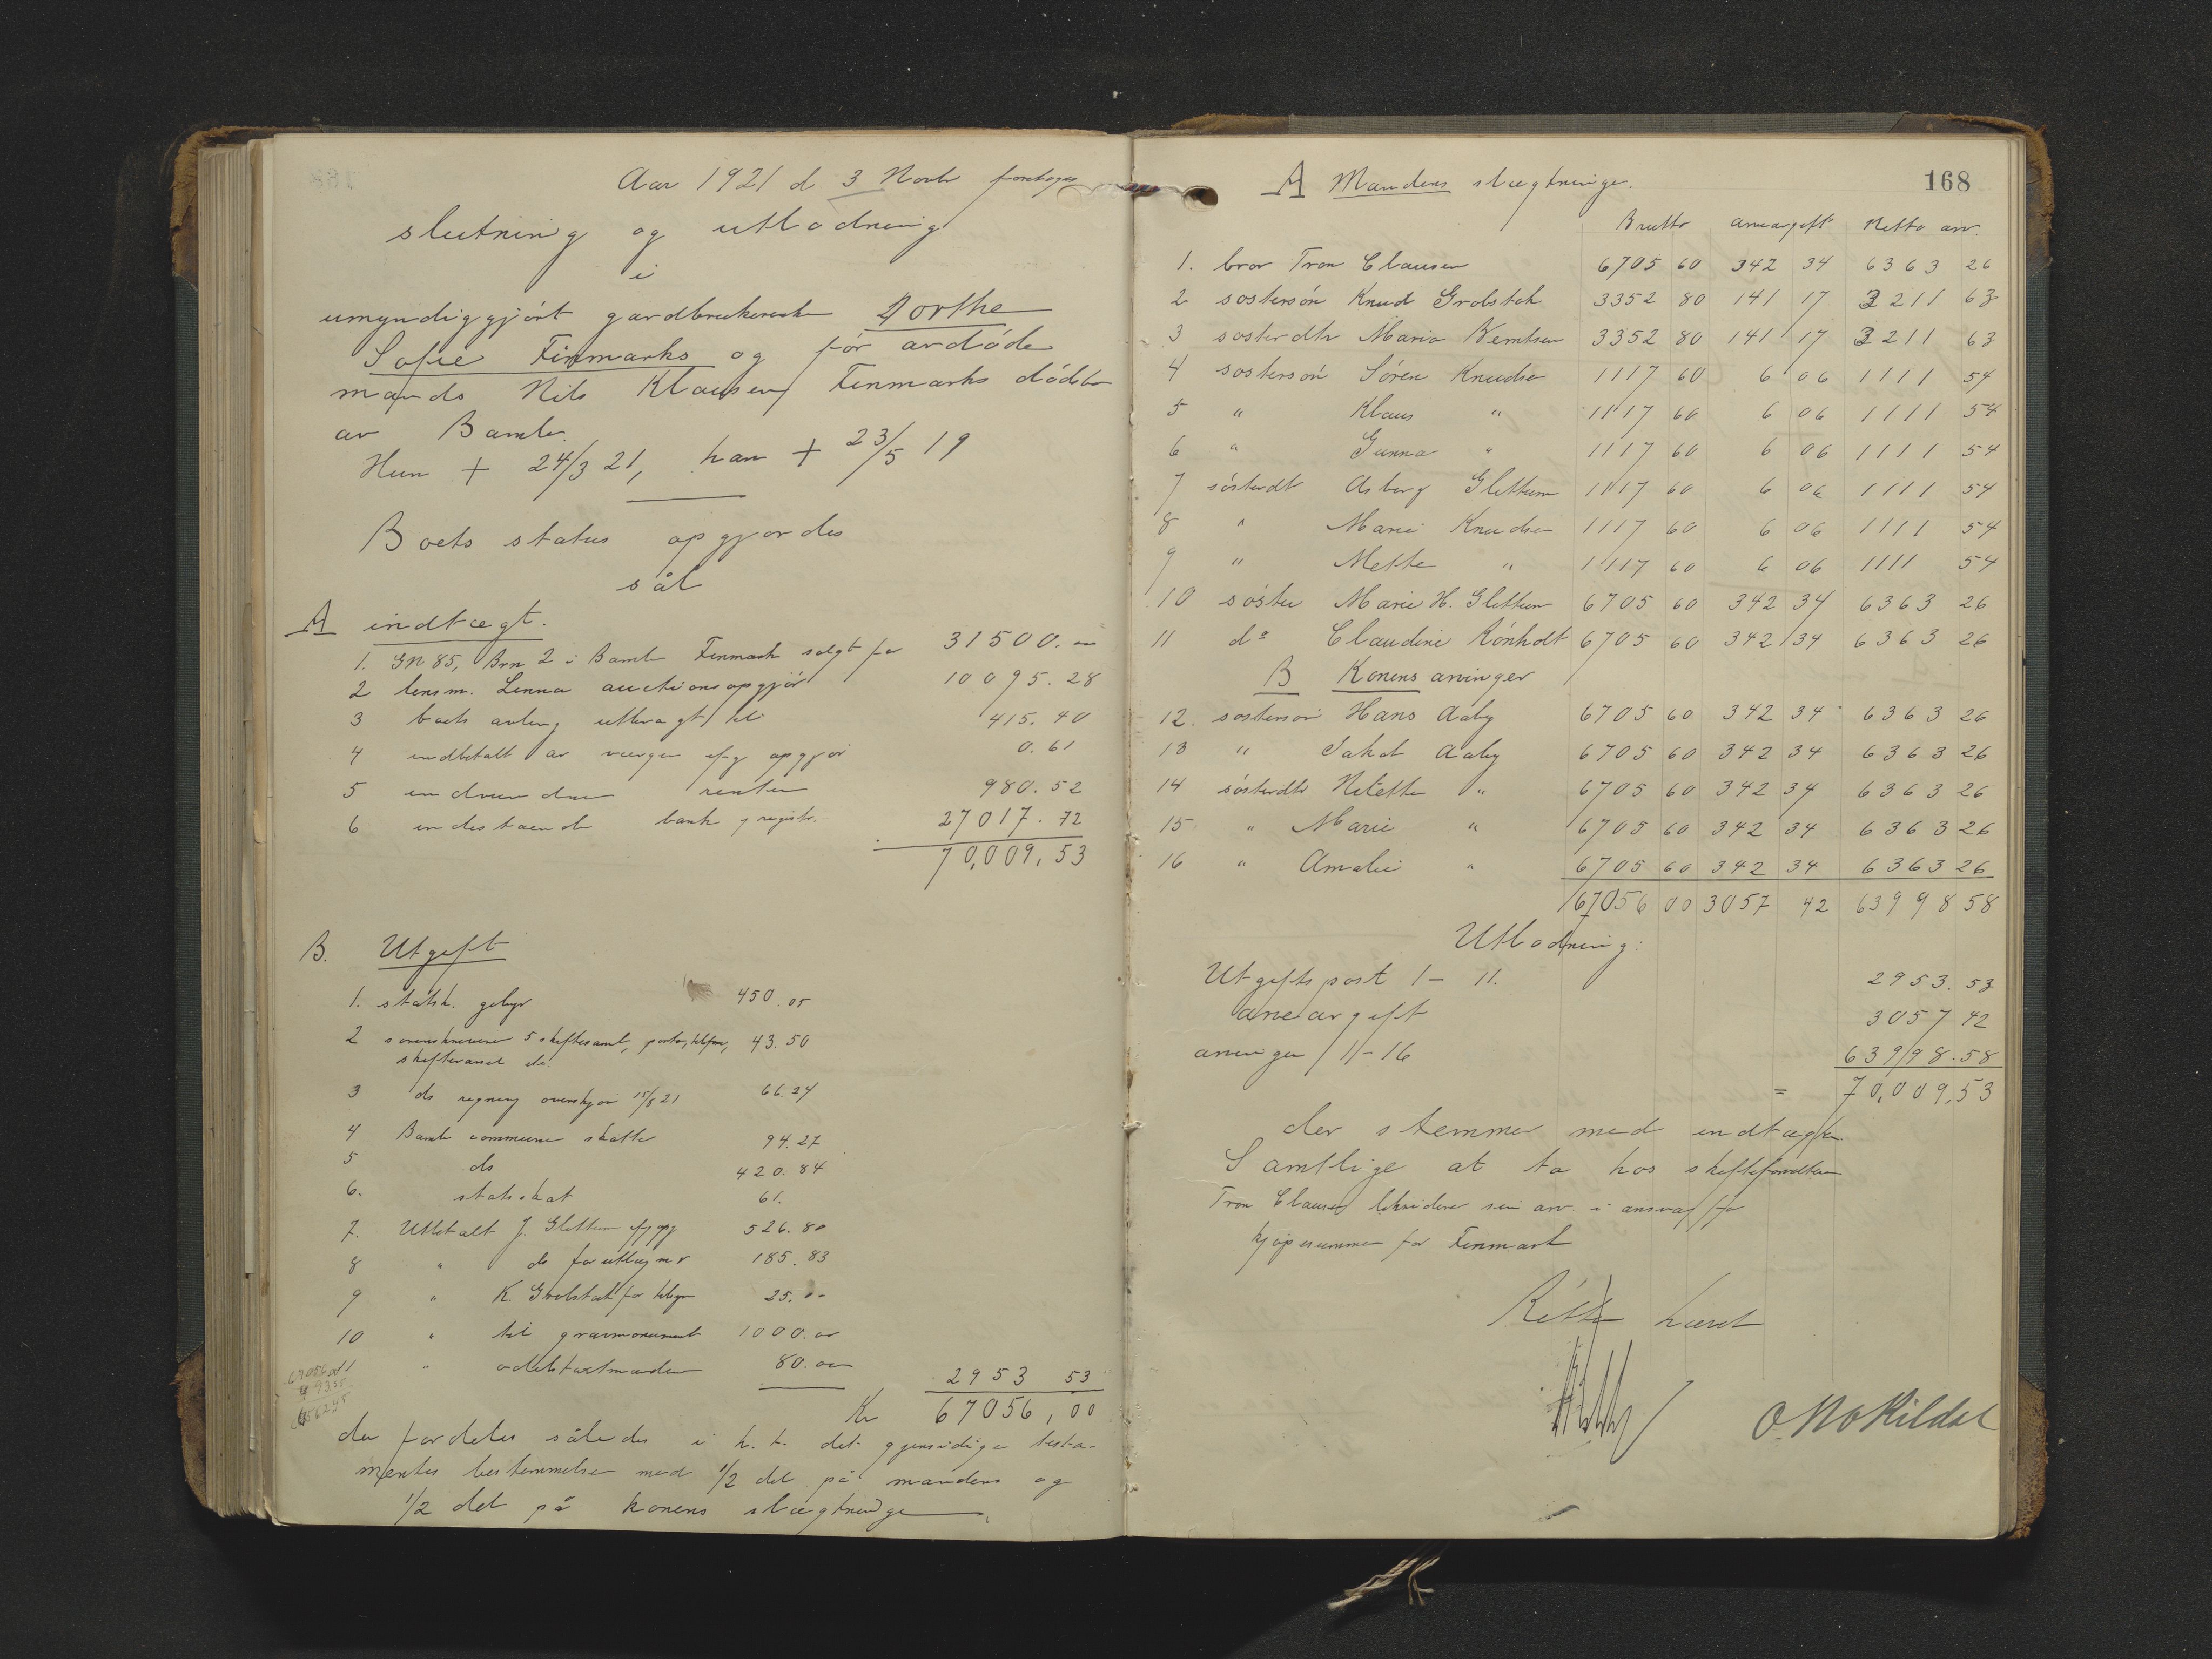 Aar 1921 d. 3 Novb foretoges
slutning og utlodning
i
umyndiggjørt gardbrukerenke Dorthe
Sofie Finmarks og før avdøde
mands Nils Klausen Finmarks dødsbo
av Bamle.
Hun + 24/3 21, han + 23/5 19
Boets status opgjordes
sål
A indtægt.
1. Gn 85, Brn 2 i Bamle Finmark solgt for 31500.00
2 lensm. Lenna auctionsopgjør 10095.28
3 boets avling utbragt til 415.40
4 indbetalt av vergen opgjør 0.61
5 indvundne renter 980.52
6 indestaende bank 27017.72
70,009,53
B. Utgift
1. statsk. gebyr 450.05
2 sorenskriveren 5 skiftesaml, porto, telefon, 43.50
3 do regning 15/8 21 66.24
4 Bamle commune skatte 94.27
5 do 420.84
6. statsskat 61.
7. Utbetalt J. Glittum 526.80
8 " do for utlæg m v 185.83
9 " K. Grobstok for 25.00
10 " til gravmonument 1000.00
11 " odelstaxtmænden 80.00 2953 53
Kr 67056,00
der fordeles således i h. t. det gjensidige testa-
mentes bestemmelse med 1/2 del på mandens og
1/2 del på konens slægtninge
168
A Mandens slægtninge.
Brutto arveavgift Netto arv.
1. bror Tron Clausen 6705 60 342 34 6363 26
2 søstersøn Knud Grobstok 3352 80 141 17 3211 63
3 søsterdtr Maria Berntsen 3352 80 141 17 3211 63
4 søstersøn Søren Knudsen 1117 60 6 06 1111 54
5 " Klaus " 1117 60 6 06 1111 54
6 " Gunna " 1117 60 6 06 1111 54
7 søsterdt Asberg Glittum 1117 60 6 06 1111 54
8 " Marie Knudsen 1117 60 6 06 1111 54
9 " Mette " 1117 60 6 06 1111 54
10 søster Marie H. Glittum 6705 60 342 34 6363 26
11 do Claudine Rønholt 6705 60 342 34 6363 26
B Konens arvinger
12. søstersøn Hans Aaby 6705 60 342 34 6363 26
13 " Jakob Aaby 6705 60 342 34 6363 26
14 søsterdtr Nicette " 6705 60 342 34 6363 26
15 " Marie " 6705 60 342 34 6363 26
16 " Amalie " 6705 60 342 34 6363 26
67056 00 3057 42 63998 58
Utlodning:
Utgiftspost 1 - 11. 2953.53
arveavgift 3057 42
arvinger 1-16 63998.58
= 70,009,53
der stemmer med indtægten.
Samtlige at ta hos skifteforvalteren
Tron Clausen likviderer sin arv i ansvar for
kjøpesummen for Finmark
Retten hævet
O. N. Kildal